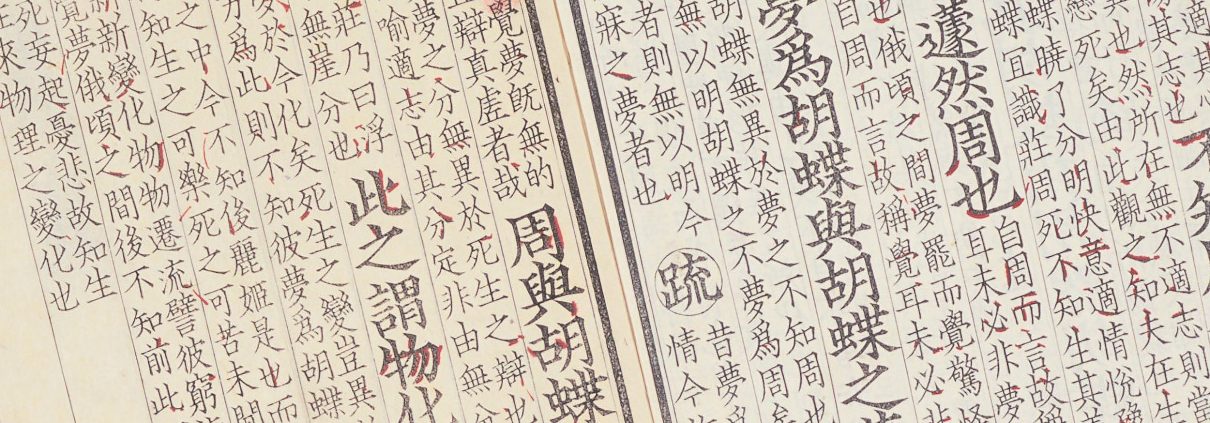 其志也不知
異也然所在無不適志則當
戀死矣由此觀之知夫在生
蝶曉了分明快意適情悅豫
蝶宜識莊周死不知生其
蘧然周也
自周而言故稱
耳未必非夢
也俄頃之間夢罷而覺驚怪
自周而言故稱覺耳未必非
夢為胡蝶與胡蝶之
胡蝶無異於夢之不知周也
無以明胡蝶之不夢為周矣
者則無以明今
寐之夢者也
疏
昔夢為
情今
覺夢既無的
辯真虛者哉
周與胡蝶
夢之分無異於死生之辯也
喻適志由其分定非由無分
莊乃曰浮
無崖分也
此之謂物化
於今化矣死生之變豈異
為此則不知彼夢為胡蝶
之中今不知後麗姬是也而
知生之可樂死之可苦未聞
新新變化物物遷流譬彼窮
覺夢俄頃之間後不知前此
死妄起憂悲故知生
來物理之變化也